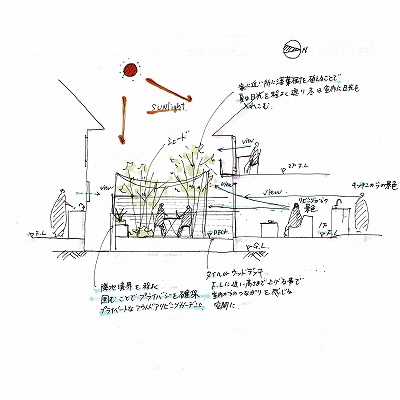 N
家に近い所に落葉樹を植えることで
夏は日光を程よく遮り冬は室内に日光を
とりこむ。
SUNlight
シェード
view
2F.L
view
view
view
キッチンからの景色
リビングからの
景色
1F
F.L
▽F.L
DECK
▽G.L
隣地境界を程よく
囲むことでプライバシーを確保
プライベートなアウトドアリビングガーデンに
タイルorウッドデッキ
F.Lに近い高さまで上げる事で
室内からのつながりを感じる
空間に